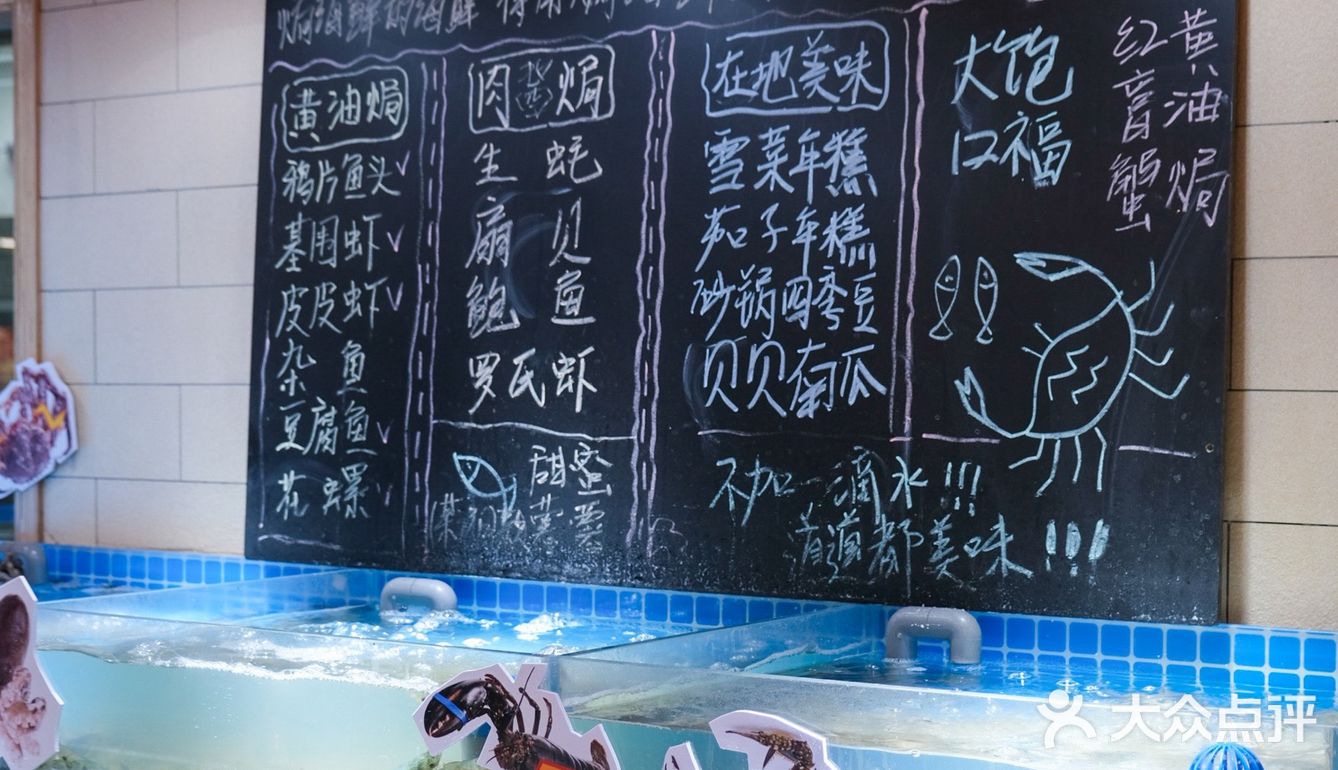 焗海鲜
黄油焗
鸦片鱼头
基围虾
皮皮虾
杂鱼
豆腐鱼
花螺
肉 焗
生蚝
扇贝
鲍鱼
罗氏虾
甜蜜
在地美味
雪菜年糕
茄子年糕
砂锅四季豆
贝贝南瓜
不加一滴水!!!
道道都美味!!!
大饱
口福
黄油焗
红膏蟹
大众点评